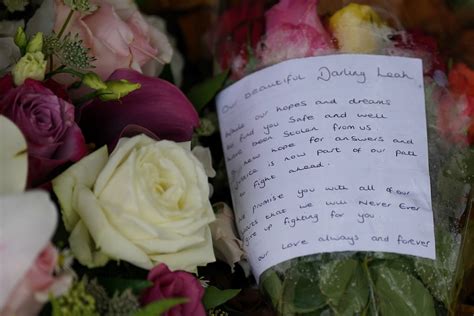 Our beautiful Darling Leah
hopes and dreams
find you Safe and well
have been Stolen from us
new hope for answers and
is now part of our path
fight ahead.
promise you with all of our
that we will Never Ever
give up fighting for you
our Love always and forever